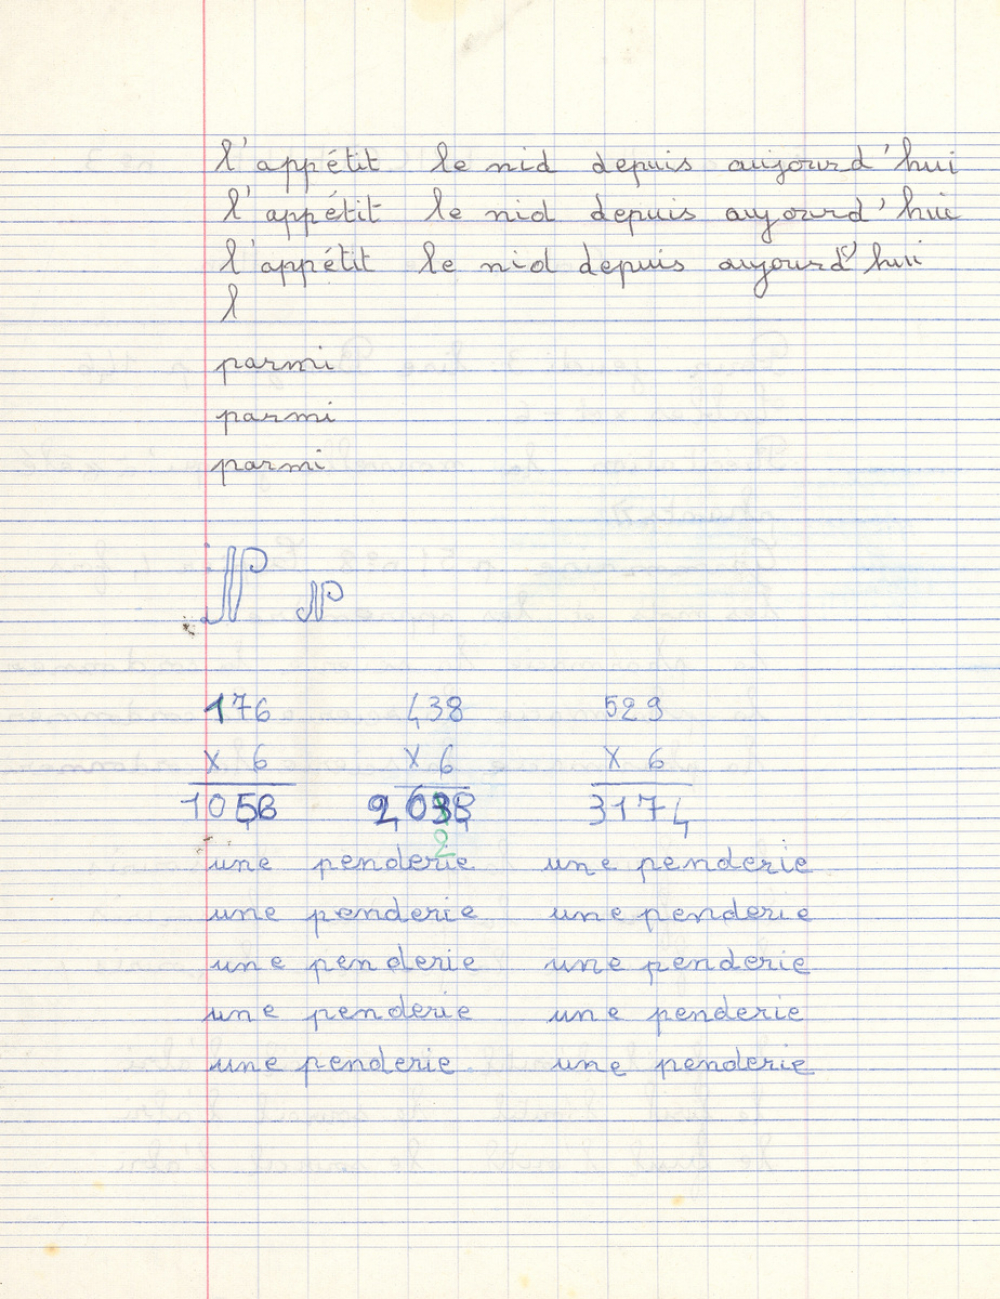 l'appétit le nid depuis aujourd'hui
l'appétit le nid depuis aujourd'hui
l'appétit le nid depuis aujourd'hui
l
parmi
parmi
parmi
N N
176 438 529
x 6 x 6 x 6
1056 3174
2
une penderie une penderie
une penderie une penderie
une penderie une penderie
une penderie une penderie
une penderie une penderie